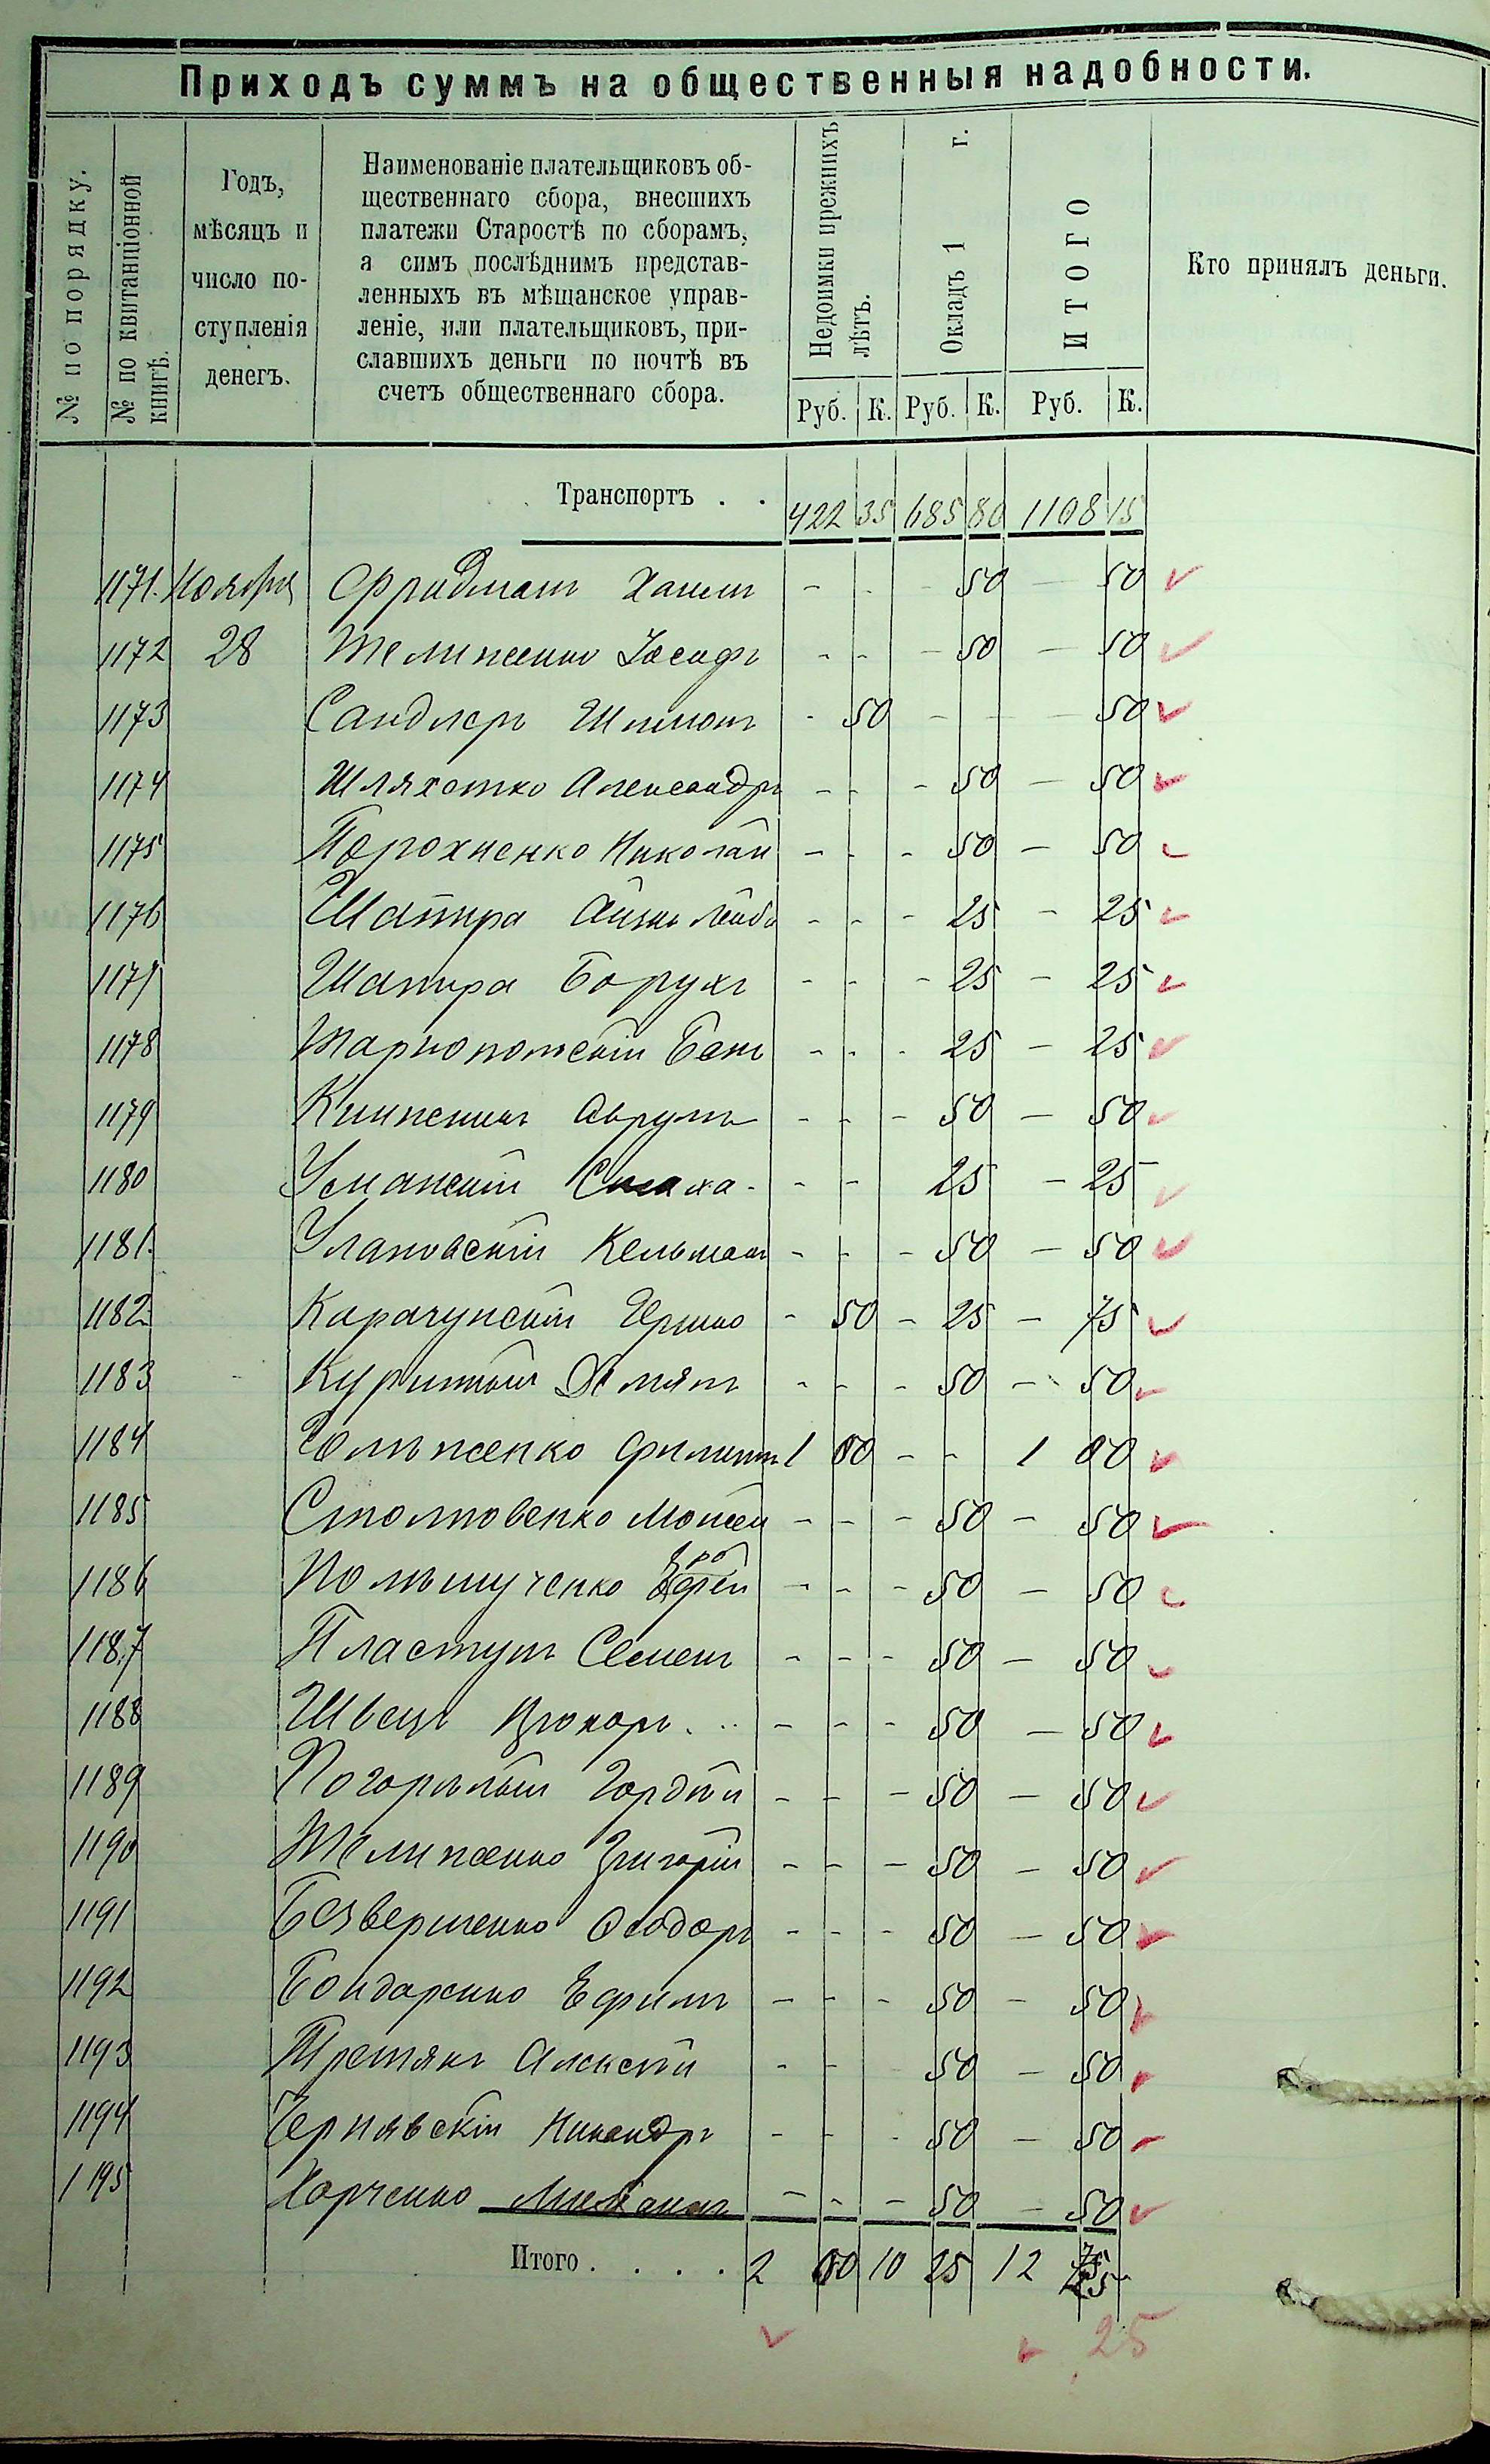 Приходъ суммъ на общественныя надобности.
№ по порядку.
№ по квитанціонной книгѣ.
Годъ,
мѣсяцъ и
число по-
ступленія
денегъ.
Наименованіе плательщиковъ об-
щественнаго сбора, внесшихъ
платежи Старостѣ по сборамъ,
а симъ послѣднимъ представ-
ленныхъ въ мѣщанское управ-
леніе, или плательщиковъ, при-
славшихъ деньги по почтѣ въ
счетъ общественнаго сбора.
Недоимки прежнихъ лѣтъ.
Окладъ 1 г.
ИТОГО
Кто принялъ деньги.
Руб. К. Руб. К. Руб. К.
Транспортъ . . 422 35 685 80 1108 15
1171. Ноября Фридманъ Хаимъ - - - 50 - 50
1172 28 Телиженко Іосифъ - - - 50 - 50
1173 Сандлеръ Шимонъ - 50 - - - 50
1174 Шляхотко Александръ - - - 50 - 50
1175 Порохненко Николай - - - 50 - 50
1176 Шапира - - - 25 - 25
1177 Шапира Борухъ - - - 25 - 25
1178 Тарнопольскій - - - 25 - 25
1179 Аврумъ - - - 50 - 50
1180 Уманскій - - 25 - 25
1181. Улановскій Кельманъ - - - 50 - 50
1182 Карачунскій Гершко - 50 - 25 - 75
1183 - - - 50 - 50
1184 Филиппъ 1 00 - - 1 00
1185 Столповенко Моисей - - - 50 - 50
1186 - - - 50 - 50
1187 Пластунъ Семенъ - - - 50 - 50
1188 Швецъ - - - 50 - 50
1189 Погорѣлый Гордѣй - - - 50 - 50
1190 Телиженко Григорій - - - 50 - 50
1191 Безвершенко Ѳеодоръ - - - 50 - 50
1192 Бондаренко Ефимъ - - - 50 - 50
1193 Третякъ Алексѣй - - 50 - 50
1194 Чернявскій Никандръ - - - 50 - 50
1195 Харченко Михаилъ - - - 50 - 50
Итого . . . . 2 00 10 25 12
25